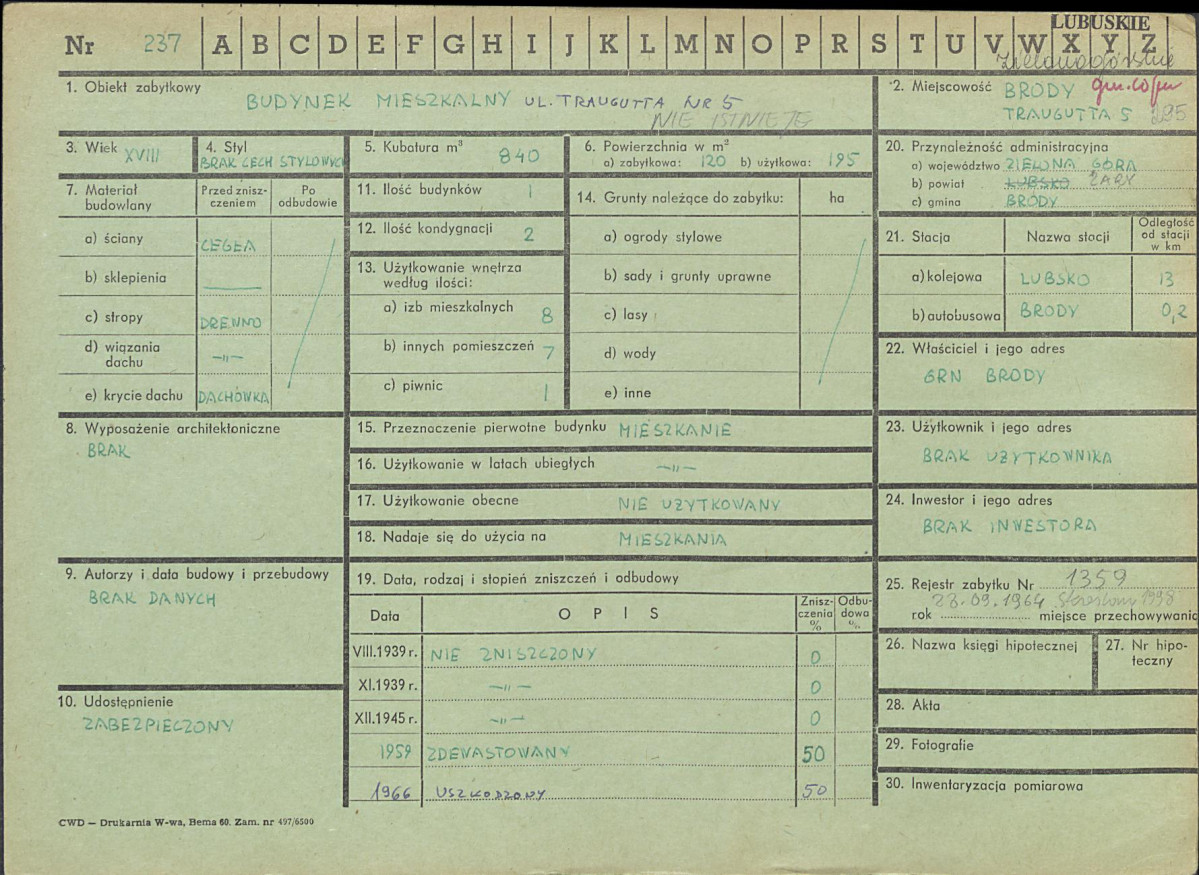 LUBUSKIE
Nr 237 A B C D E F G H I J K L M N O P R S T U V W X Y Z
Zielonogórskie
1. Obiekt zabytkowy
BUDYNEK MIESZKALNY UL. TRAUGUTTA NR 5
NIE ISTNIEJE
2. Miejscowość BRODY
TRAUGUTTA 5 295
3. Wiek XVIII
4. Styl
BRAK CECH STYLOWYCH
5. Kubatura m³
840
6. Powierzchnia w m²
a) zabytkowa: 120 b) użytkowa: 195
20. Przynależność administracyjna
a) województwo ZIELONA GÓRA
b) powiat LUBSKO ŻARY
c) gmina BRODY
7. Materiał budowlany
Przed zniszczeniem
Po odbudowie
a) ściany CEGŁA
b) sklepienia
c) stropy DREWNO
d) wiązania dachu —„—
e) krycie dachu DACHÓWKA
11. Ilość budynków 1
12. Ilość kondygnacji 2
13. Użytkowanie wnętrza
według ilości:
a) izb mieszkalnych 8
b) innych pomieszczeń 7
c) piwnic 1
14. Grunty należące do zabytku: ha
a) ogrody stylowe
b) sady i grunty uprawne
c) lasy
d) wody
e) inne
21. Stacja Nazwa stocji Odległość od stacji w km
a) kolejowa LUBSKO 13
b) autobusowa BRODY 0,2
22. Właściciel i jego adres
GRN BRODY
8. Wyposażenie architektoniczne
BRAK
15. Przeznaczenie pierwotne budynku MIESZKANIE
16. Użytkowanie w latach ubiegłych —„—
17. Użytkowanie obecne NIE UŻYTKOWANY
18. Nadaje się do użycia na MIESZKANIA
23. Użytkownik i jego adres
BRAK UŻYTKOWNIKA
24. Inwestor i jego adres
BRAK INWESTORA
9. Autorzy i data budowy i przebudowy
BRAK DANYCH
19. Data, rodzaj i stopień zniszczeń i odbudowy
Data OPIS Zniszczenia % Odbudowa %
VIII.1939 r. NIE ZNISZCZONY 0
XI.1939 r. —„— 0
XII.1945 r. —„— 0
1959 ZDEWASTOWANY 50
1966 USZKODZONY 50
25. Rejestr zabytku Nr 1359
23.09.1964 1998
rok miejsce przechowywanic
26. Nazwa księgi hipotecznej
27. Nr hipoteczny
10. Udostępnienie
ZABEZPIECZONY
28. Akta
29. Fotografie
30. Inwentaryzacja pomiarowa
CWD — Drukarnia W-wa, Bema 60. Zam. nr 497/6500